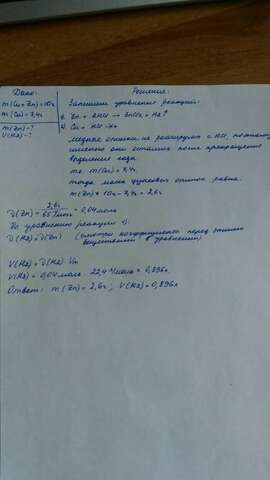 Дано:
m(Cu+Zn)=10г
m(Cu)=7,4г
m(Zn)-?
V(H2)-?
Решение:
Запишем уравнения реакций:
1. Zn + 2HCl → ZnCl2 + H2↑
2. Cu + HCl -x→
Медные опилки не реагируют с HCl, поэтому
именно они остались после прекращения
выделения газа
т.е. m(Cu)=7,4г
Тогда масса цинковых опилок равна:
m(Zn) = 10г - 7,4г = 2,6г
ν(Zn) = 2,6г / 65 г/моль = 0,04 моль
По уравнению реакции 1):
ν(H2)=ν(Zn) (смотри коэффициент перед этими
веществами в уравнении)
V(H2)=ν(H2)·Vm
V(H2)= 0,04 моль · 22,4 л/моль = 0,896л
Ответ: m(Zn)=2,6г; V(H2)=0,896л